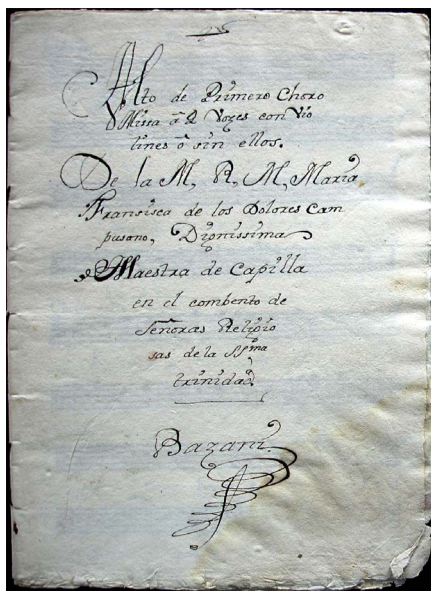 Alto de Primero Choro
Missa â 8 Vozes con Vio
lines ô sin ellos.
De la M, R, M, Maria
Fransisca de los Dolores Cam
pusano, Dignissima
Maestra de Capilla
en el combento de
Señoras Religio
sas de la SSma
trinidad
Bazani